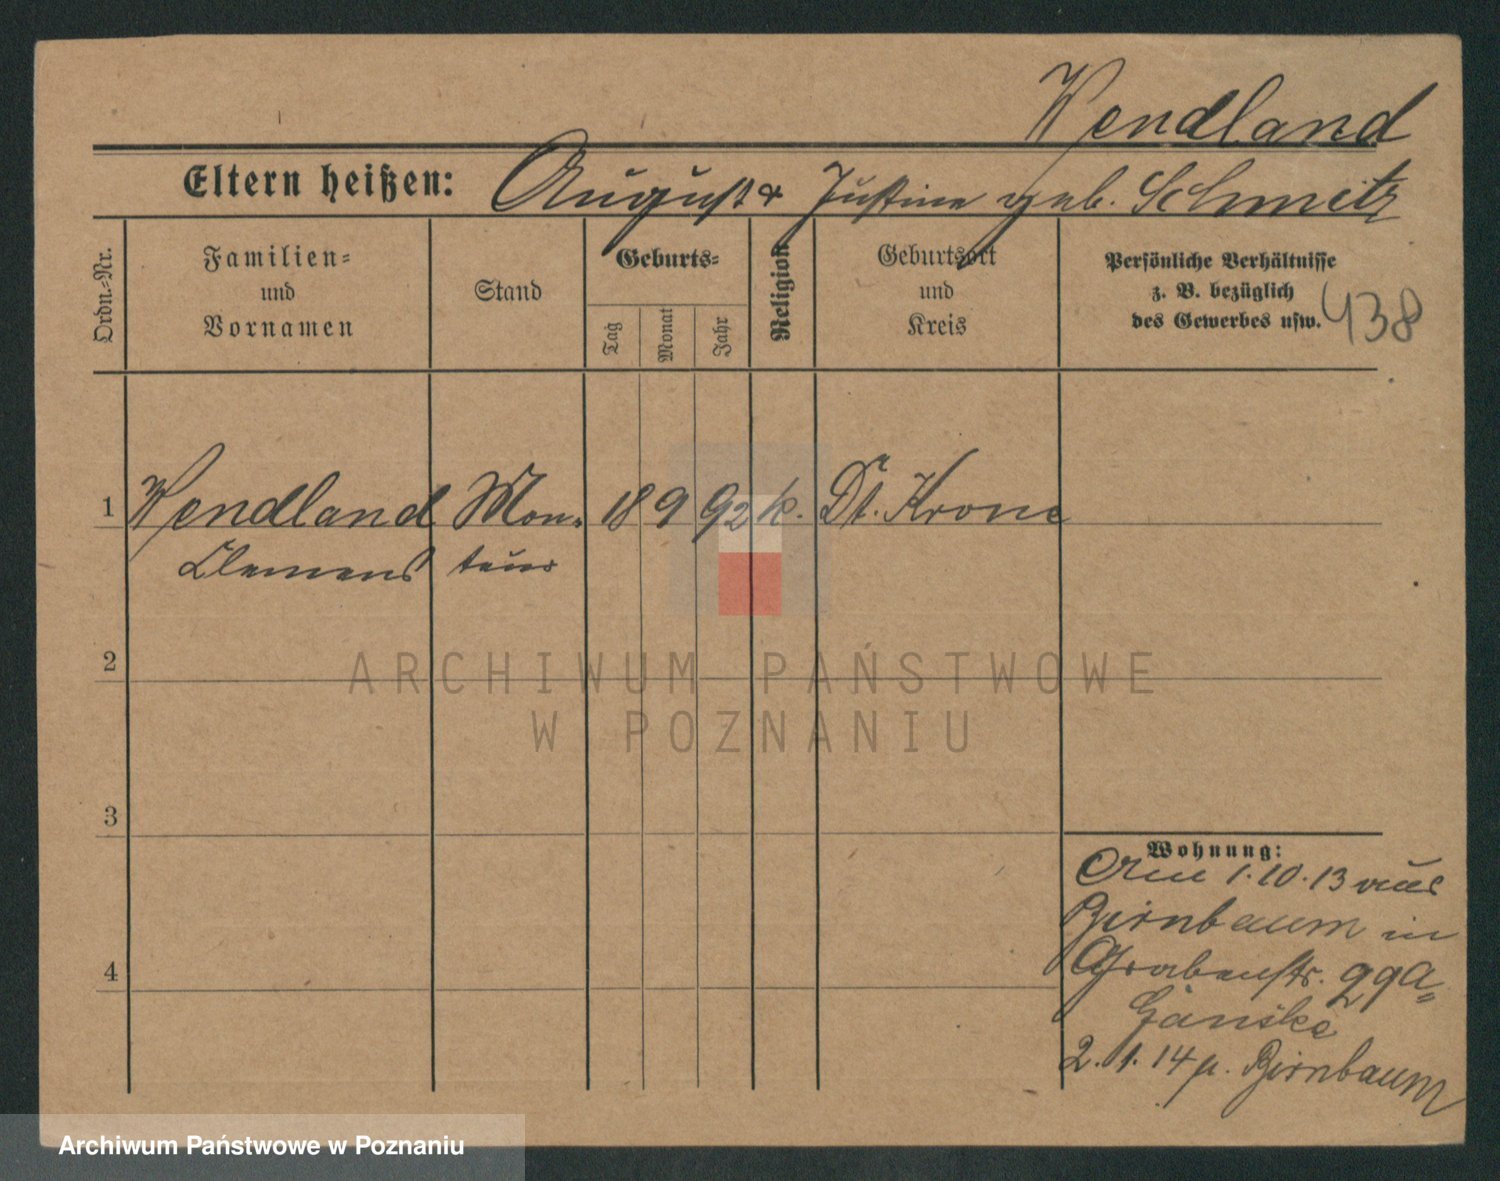 Wendland
Eltern heißen: August & Justine geb. Schmelz
Ordn.-Nr.
Familien-
und
Vornamen
Stand
Geburts-
Tag
Monat
Jahr
Religion
Geburtsort
und
Kreis
Persönliche Verhältnisse
z. B. bezüglich
des Gewerbes usw.
438
1 Wendland Mon- 18 9 92 k. Dt. Krone
Clemens teur
2
ARCHIWUM PAŃSTWOWE
W POZNANIU
3
Wohnung:
Am 1.10.13 aus
Birnbaum in
Grabenstr.
Gänske
2.1.14 n. Birnbaum
4
Archiwum Państwowe w Poznaniu